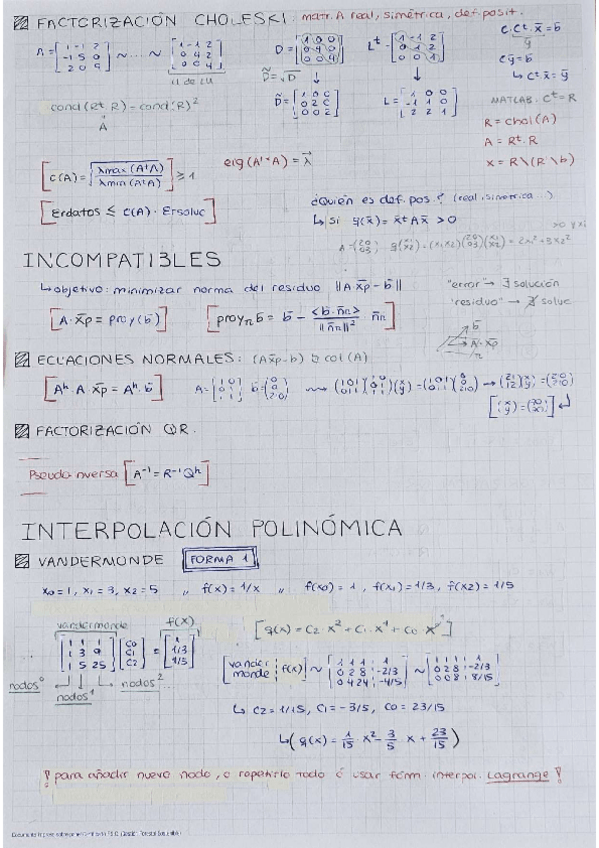 FACTORIZACIÓN CHOLESKI: matr. A real, simétrica, def. posit.
A = [1 -1 2; -1 5 0; 2 0 9] ~ ... ~ [1 -1 2; 0 4 2; 0 0 4]
U de LU
D = [1 0 0; 0 4 0; 0 0 4]
Lᵗ = [1 -1 2; 0 1 2; 0 0 1]
C · Cᵗ · x̄ = b̄
ȳ
D̃ = √D
Cȳ = b̄
↳ Cᵗ x̄ = ȳ
D̃ = [1 0 0; 0 2 0; 0 0 2]
L = [1 0 0; -1 1 0; 2 2 1]
cond(Rᵗ R) = cond(R)²
A
MATLAB: Cᵗ = R
R = chol(A)
A = Rᵗ · R
x = R\(R'\b)
[C(A) = √(λmax(AᵗA) / λmin(AᵗA))] ≥ 1
eig(A' * A) = λ⃗
[Erdatos ≤ C(A) · Ersoluc]
¿Quién es def. pos.? (real, simétrica ..)
↳ Si q(x̄) = x̄ᵗ A x̄ > 0
A = (2 0; 0 3) q(x₁; x₂) = (x₁ x₂)(2 0; 0 3)(x₁; x₂) = 2x₁² + 3x₂²
INCOMPATIBLES
↳ objetivo: minimizar norma del residuo ||A x̄p - b̄||
"error" → ∃ solución
"residuo" → ∄ soluc
[A · x̄p = proy(b̄)]
[proyπ b̄ = b̄ - <b̄ · n̄π> / ||n̄π||² n̄π]
b̄
A · x̄p
π
ECUACIONES NORMALES: (A x̄p - b) ⊥ col(A)
[Aʰ · A · x̄p = Aʰ · b̄]
FACTORIZACIÓN QR.
Pseudoinversa [A⁻¹ = R⁻¹ Qʰ]
INTERPOLACIÓN POLINÓMICA
VANDERMONDE FORMA 1
x₀ = 1, x₁ = 3, x₂ = 5 ,, f(x) = 1/x ,, f(x₀) = 1, f(x₁) = 1/3, f(x₂) = 1/5
vandermonde f(x)
[q(x) = C₂ · x² + C₁ · x¹ + C₀ · x⁰]
[1 1 1; 1 3 9; 1 5 25] [C₀; C₁; C₂] = [1; 1/3; 1/5]
nodos⁰ nodos¹ nodos² ...
[vandermonde | f(x)] ~ [1 1 1 | 1; 0 2 8 | -2/3; 0 4 24 | -4/5] ~ [1 1 1 | 1; 0 2 8 | -2/3; 0 0 8 | 8/15]
↳ C₂ = 1/15, C₁ = -3/5, C₀ = 23/15
↳ (q(x) = 1/15 x² - 3/5 x + 23/15)
¡para añadir nuevo nodo, o repetirlo todo ó usar fórm. interpol. Lagrange!